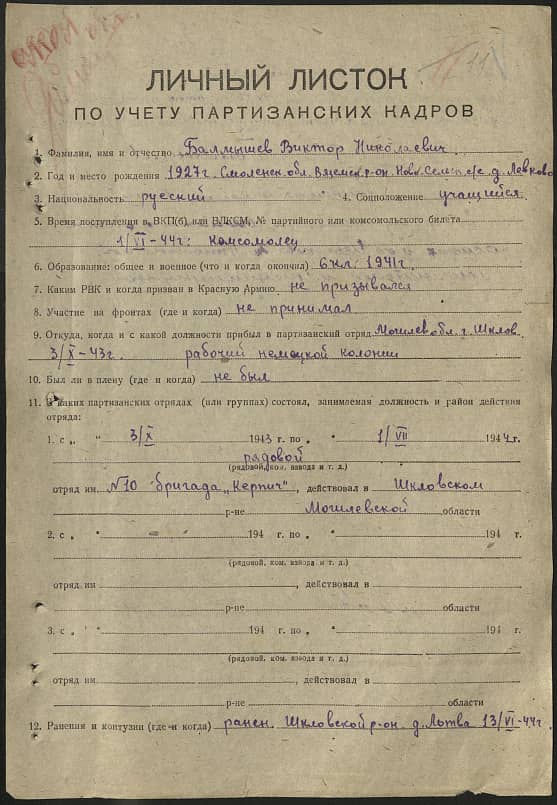 ЛИЧНЫЙ ЛИСТОК
ПО УЧЕТУ ПАРТИЗАНСКИХ КАДРОВ
1. Фамилия, имя и отчество Балмышев Виктор Николаевич
2. Год и место рождения 1927г. Смоленск. обл. Вяземск. р-он. д. Левково
3. Национальность русский 4. Соцположение учащийся.
5. Время поступления в ВКП(б) или ВЛКСМ, № партийного или комсомольского билета
1/VI-44г. комсомолец
6. Образование: общее и военное (что и когда окончил) 6 кл. 1941г.
7. Каким РВК и когда призван в Красную Армию не призывался
8. Участие на фронтах (где и когда) не принимал
9. Откуда, когда и с какой должности прибыл в партизанский отряд Могилев. обл. г. Шклов
3/X-43г. рабочий немецкой колонии
10. Был ли в плену (где и когда) не был
11. В каких партизанских отрядах (или группах) состоял, занимаемая должность и район действия
отряда:
1. с „ “ 3/X 1943 г. по „ “ 1/VII 1944 г.
рядовой
(рядовой, ком. взвода и т. д.)
отряд им. №10 бригада „Керпич“, действовал в Шкловском
р-не Могилевской области
2. с „ “ 194 г. по „ “ 194 г.
(рядовой, ком. взвода и т. д.)
отряд им , действовал в
р-не области
3. с „ “ 194 г. по „ “ 194 г.
(рядовой, ком. взвода и т. д.)
отряд им. , действовал в
р-не области
12. Ранения и контузии (где и когда) ранен. Шкловской р-он. д. Лотва 13/VI-44г.